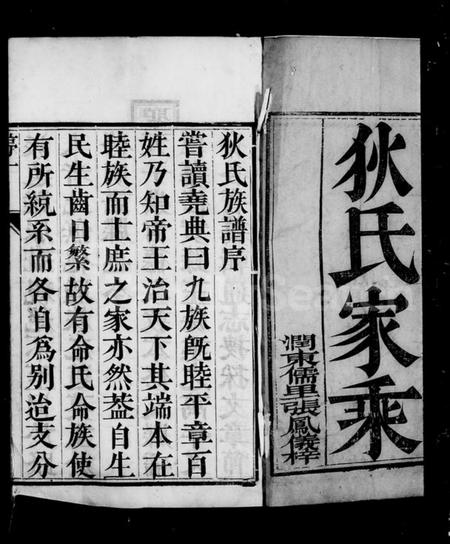 狄氏家乘
潤東儒里張鳳儀梓
狄氏族譜序
嘗讀堯典曰九族既睦平章百
姓乃知帝王治天下其端本在
睦族而士庶之家亦然葢自生
民生齒日繁故有命氏命族使
有所統系而各自爲別迨支分